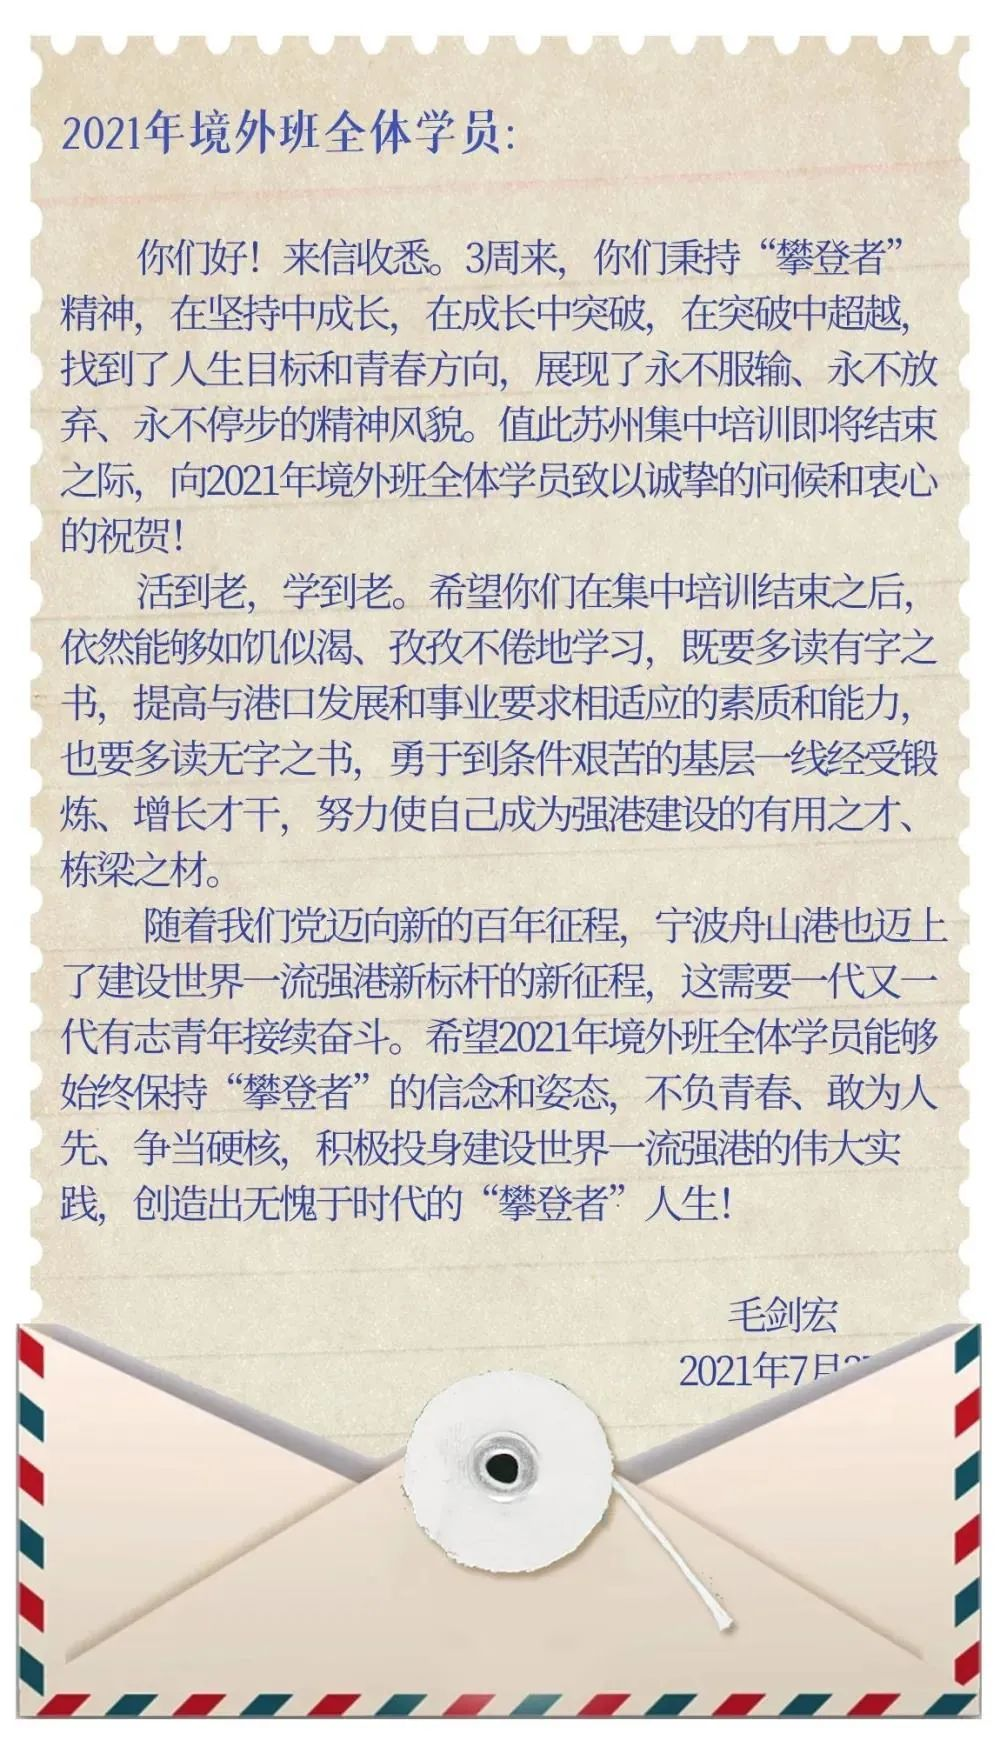 2021年境外班全体学员：
你们好！来信收悉。3周来，你们秉持“攀登者”
精神，在坚持中成长，在成长中突破，在突破中超越，
找到了人生目标和青春方向，展现了永不服输、永不放
弃、永不停步的精神风貌。值此苏州集中培训即将结束
之际，向2021年境外班全体学员致以诚挚的问候和衷心
的祝贺！
活到老，学到老。希望你们在集中培训结束之后，
依然能够如饥似渴、孜孜不倦地学习，既要多读有字之
书，提高与港口发展和事业要求相适应的素质和能力，
也要多读无字之书，勇于到条件艰苦的基层一线经受锻
炼、增长才干，努力使自己成为强港建设的有用之才、
栋梁之材。
随着我们党迈向新的百年征程，宁波舟山港也迈上
了建设世界一流强港新标杆的新征程，这需要一代又一
代有志青年接续奋斗。希望2021年境外班全体学员能够
始终保持“攀登者”的信念和姿态，不负青春、敢为人
先、争当硬核，积极投身建设世界一流强港的伟大实
践，创造出无愧于时代的“攀登者”人生！
毛剑宏
2021年7月